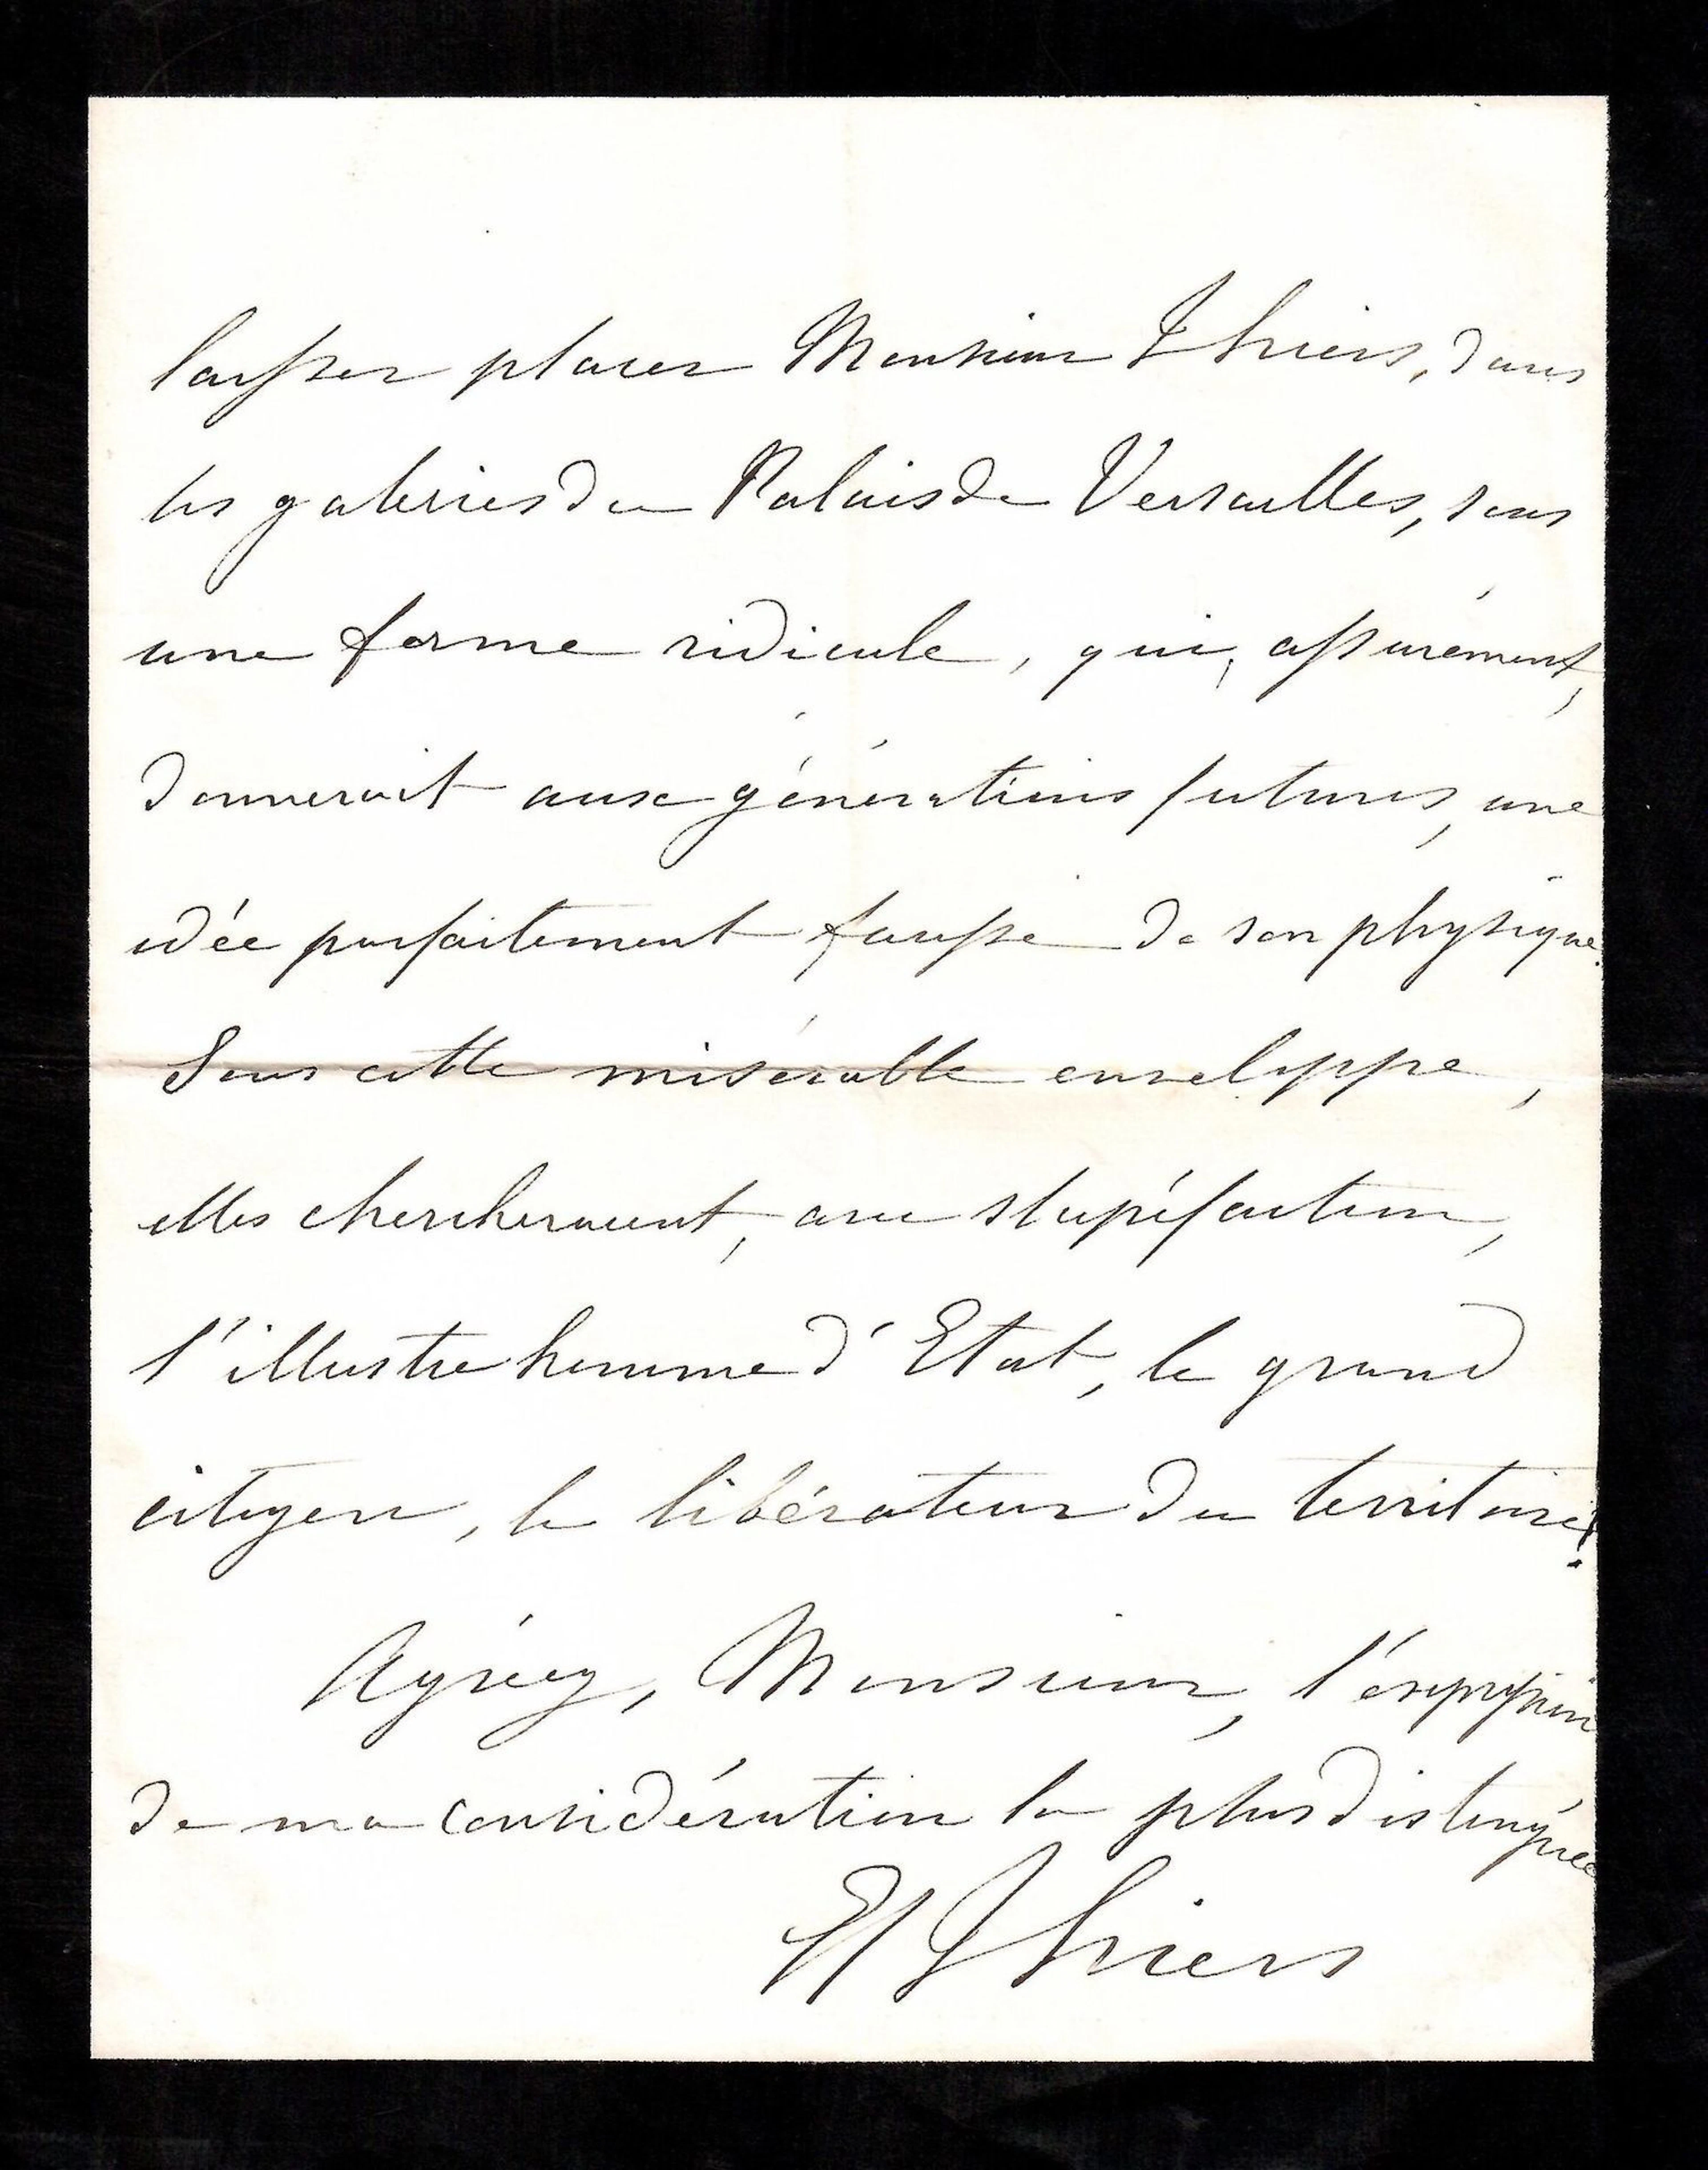 laisser placer Monsieur Thiers, dans
les galeries du Palais de Versailles, sous
une forme ridicule, qui, assurément,
donnerait aux générations futures, une
idée parfaitement fausse de son physique.
Sous cette misérable enveloppe,
elles chercheraient, avec stupéfaction,
l'illustre homme d'Etat, le grand
citoyen, le libérateur du territoire!
Agréez, Monsieur, l'expression
de ma considération la plus distinguée
E Thiers